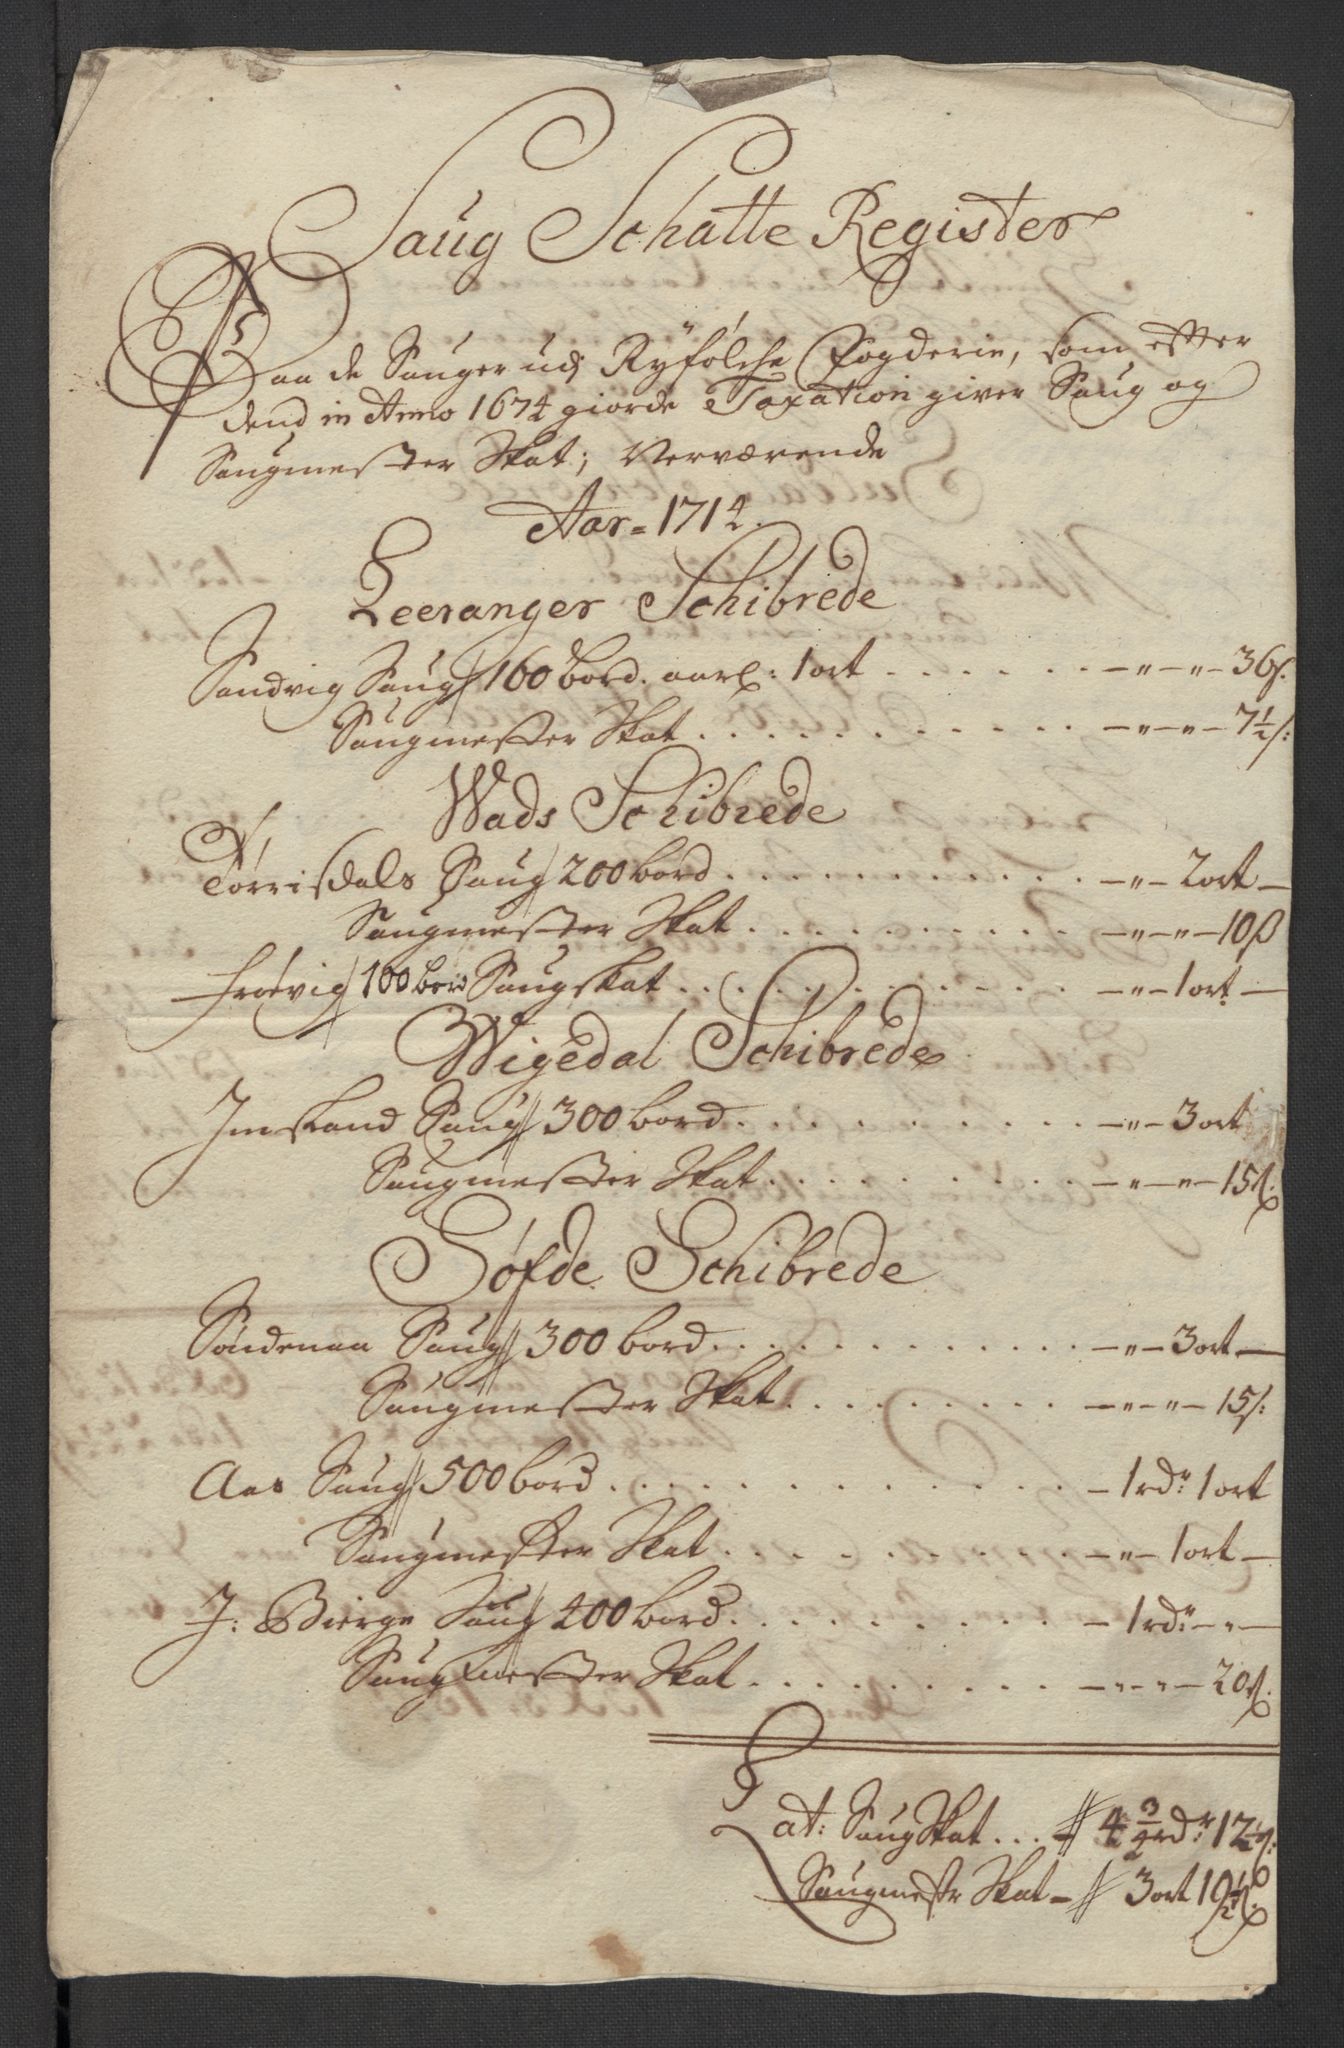 Saug Schatte Register
Paa de Sauger udj Ryfølche Fogderie, som efter
dend in Anno 1674 giorde Taxation giver Saug og
Saugmester Skat; Verværende
Aar = 1714.
Leeranger Schibrede
Sandvig Saug 160 bord. aarl: 1 ort . . . . . . — " — " — 36 s.
Saugmester Skat . . . . . . . . . . — " — " — 7½ s:
Wads Schibrede
Torrisdals Saug 200 bord . . . . . . . . . . — " — 2 ort —
Saugmester Skat . . . . . . . . . . — " — " — 10 ß
Frøvig 100 bord Saugskat . . . . . . . . . . — " — 1 ort —
Wigedal Schibrede
Imsland Saug 300 bord . . . . . . . . . . — " — 3 ort
Saugmester Skat . . . . . . . . . . — " — " — 15 ß.
Søfde Schibrede
Søndenaa Saug 300 bord . . . . . . . . . . — " — 3 ort —
Saugmester Skat . . . . . . . . . — " — " — 15 s:
Aas Saug 500 bord . . . . . . . . . . — 1 rdr: 1 ort
Saugmester Skat . . . . . . . . . . — " — 1 ort —
J: Bierge Saug 400 bord . . . . . . . . . . — 1 rdr: — " —
Saugmester Skat . . . . . . . . . — " — " — 20 ß.
Lat: Saug Skat . . . — 4¾ rdr: 12 ß:
Saugmestr Skat — 3 ort 19½ ß.